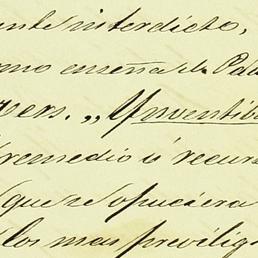 ente interdicto,
omo enseña el Pad
vers. „ Ynventib
remedio ú recurs
que se opusiera
los mas previlig